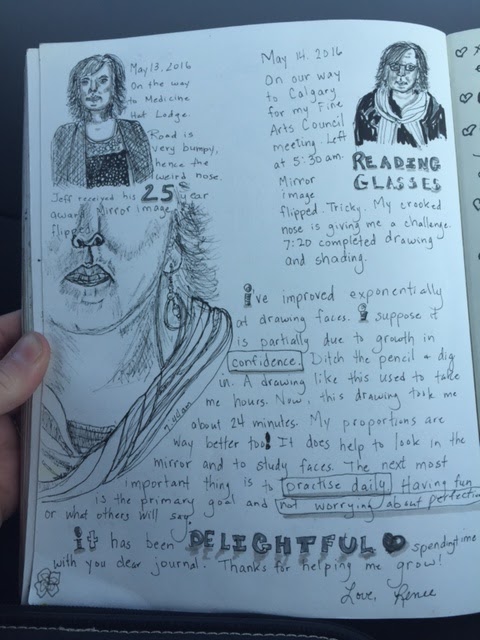 May 13, 2016
On the way
to Medicine
Hat Lodge.
Road is
very bumpy,
hence the
weird nose.
Jeff received his 25 year
award. Mirror image
flipped.
May 14, 2016
On our way
to Calgary
for my Fine
Arts Council
meeting. Left
at 5:30 am.
READING
GLASSES
Mirror
image
flipped. Tricky. My crooked
nose is giving me a challenge.
7:20 completed drawing
and shading.
I've improved exponentially
at drawing faces. I suppose it
is partially due to growth in
confidence. Ditch the pencil + dig
in. A drawing like this used to take
me hours. Now, this drawing took me
about 24 minutes. My proportions are
way better too! It does help to look in the
mirror and to study faces. The next most
important thing is to practise daily. Having fun
is the primary goal and not worrying about perfection
or what others will say.
7:44 am
It has been DELIGHTFUL spending time
with you dear journal. Thanks for helping me grow!
Love, Renee